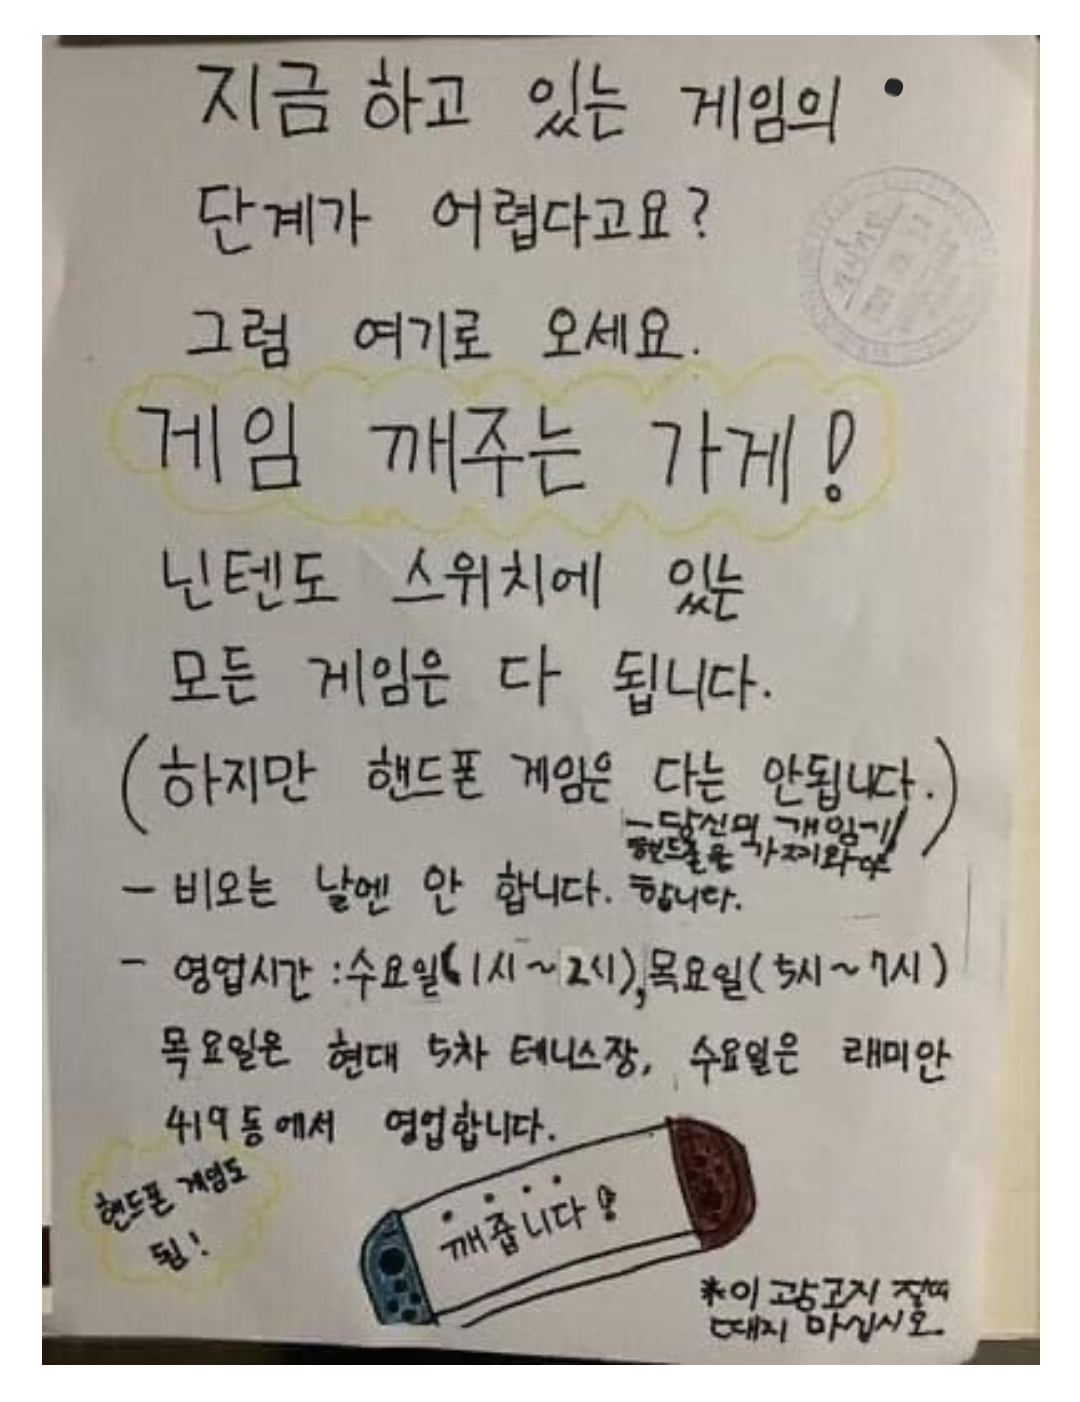 지금 하고 있는 게임의
단계가 어렵다고요?
그럼 여기로 오세요.
게임 깨주는 가게!
닌텐도 스위치에 있는
모든 게임은 다 됩니다.
(하지만 핸드폰 게임은 다는 안됩니다.)
-당신의 개임기/
핸드폰은 가져와야
합니다.
- 비오는 날엔 안 합니다.
- 영업시간 : 수요일(1시~2시), 목요일(5시~7시)
목요일은 현대 5차 테니스장, 수요일은 래미안
419동에서 영업합니다.
핸드폰 게임도
됨!
깨줍니다!
*이 광고지 절때
때지 마십시오.